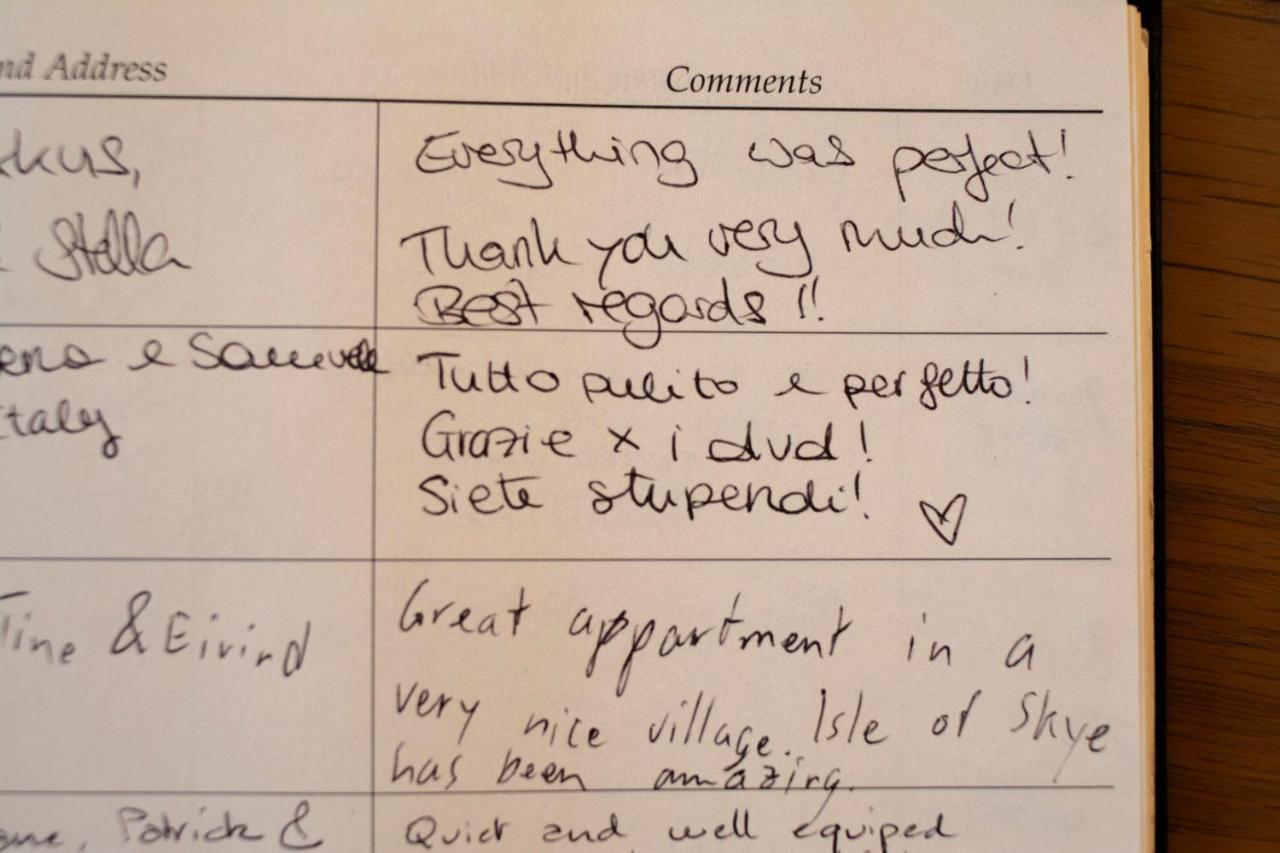 nd Address
Comments
kus,
Everything was perfect!
Stella
Thank you very much!
Best regards !!
ena e Samuele
Tutto pulito e perfetto!
Italy
Grazie x i
Siete stupendi!
Tine & Eivind
Great appartment in a
very nice village. Isle of Skye
has been amazing.
Patrick &
Quiet and well equiped